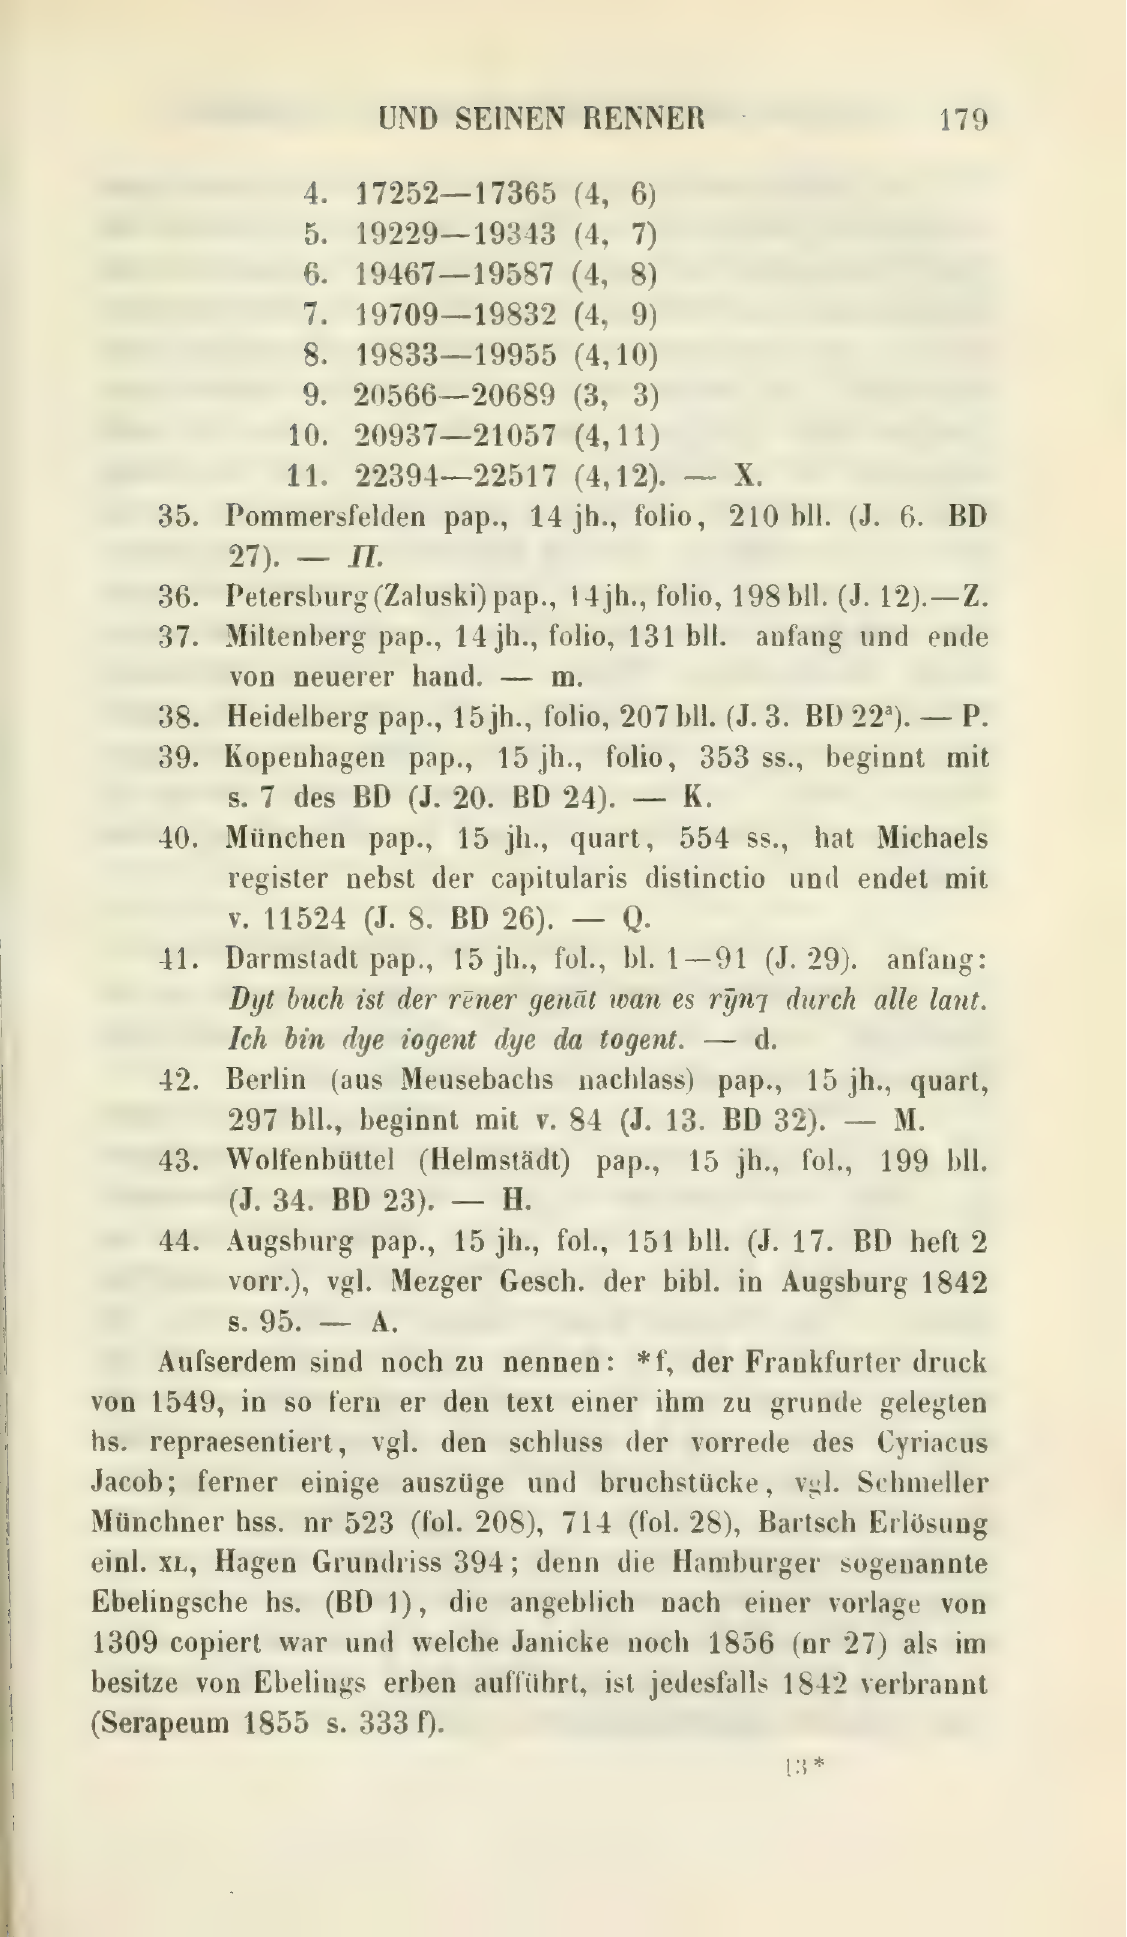 UND SEINEN RENNER 179
4. 17252—17365 (4, 6)
5. 19229—19343 (4, 7)
6. 19467—19587 (4, 8)
7. 19709—19832 (4, 9)
8. 19833—19955 (4,10)
9. 20566—20689 (3, 3)
10. 20937—21057 (4,11)
11. 22394—22517 (4,12). — X.
35. Pommersfelden pap., 14 jh., folio, 210 bll. (J. 6. BD
27). — Π.
36. Petersburg (Zaluski) pap., 14 jh., folio, 198 bll. (J. 12).—Z.
37. Miltenberg pap., 14 jh., folio, 131 bll. anfang und ende
von neuerer hand. — m.
38. Heidelberg pap., 15 jh., folio, 207 bll. (J. 3. BD 22ª). — P.
39. Kopenhagen pap., 15 jh., folio, 353 ss., beginnt mit
s. 7 des BD (J. 20. BD 24). — K.
40. München pap., 15 jh., quart, 554 ss., hat Michaels
register nebst der capitularis distinctio und endet mit
v. 11524 (J. 8. BD 26). — Q.
41. Darmstadt pap., 15 jh., fol., bl. 1—91 (J. 29). anfang:
Dyt buch ist der rēner genāt wan es rȳnꝛ durch alle lant.
Ich bin dye iogent dye da togent. — d.
42. Berlin (aus Meusebachs nachlass) pap., 15 jh., quart,
297 bll., beginnt mit v. 84 (J. 13. BD 32). — M.
43. Wolfenbüttel (Helmstädt) pap., 15 jh., fol., 199 bll.
(J. 34. BD 23). — H.
44. Augsburg pap., 15 jh., fol., 151 bll. (J. 17. BD heft 2
vorr.), vgl. Mezger Gesch. der bibl. in Augsburg 1842
s. 95. — A.
Aufserdem sind noch zu nennen: *f, der Frankfurter druck
von 1549, in so fern er den text einer ihm zu grunde gelegten
hs. repraesentiert, vgl. den schluss der vorrede des Cyriacus
Jacob; ferner einige auszüge und bruchstücke, vgl. Schmeller
Münchner hss. nr 523 (fol. 208), 714 (fol. 28), Bartsch Erlösung
einl. XL, Hagen Grundriss 394; denn die Hamburger sogenannte
Ebelingsche hs. (BD 1), die angeblich nach einer vorlage von
1309 copiert war und welche Janicke noch 1856 (nr 27) als im
besitze von Ebelings erben aufführt, ist jedesfalls 1842 verbrannt
(Serapeum 1855 s. 333 f).
13*